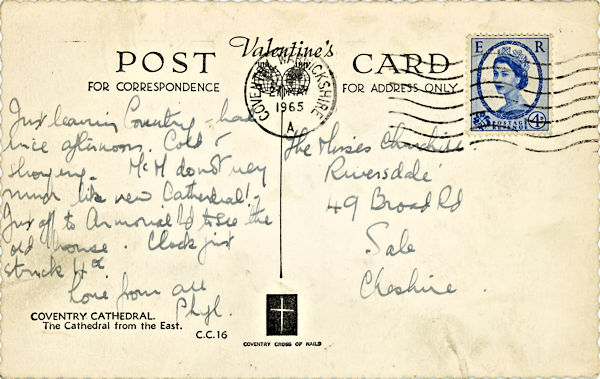 Valentine's
POST CARD
FOR CORRESPONDENCE
FOR ADDRESS ONLY
COVENTRY WARWICKSHIRE
MAY
1965
A
E R
POSTAGE
4D
Just leaving Coventry - had
nice afternoon. Cold &
showery. do not very
much like new Cathedral!
Just off to Armorial Rd to see the
old house. Clock just
struck 4
Love from all
Phyl.
The Misses Churchill
Riversdale
49 Broad Rd
Sale
Cheshire.
COVENTRY CATHEDRAL.
The Cathedral from the East.
C.C.16
COVENTRY CROSS OF NAILS